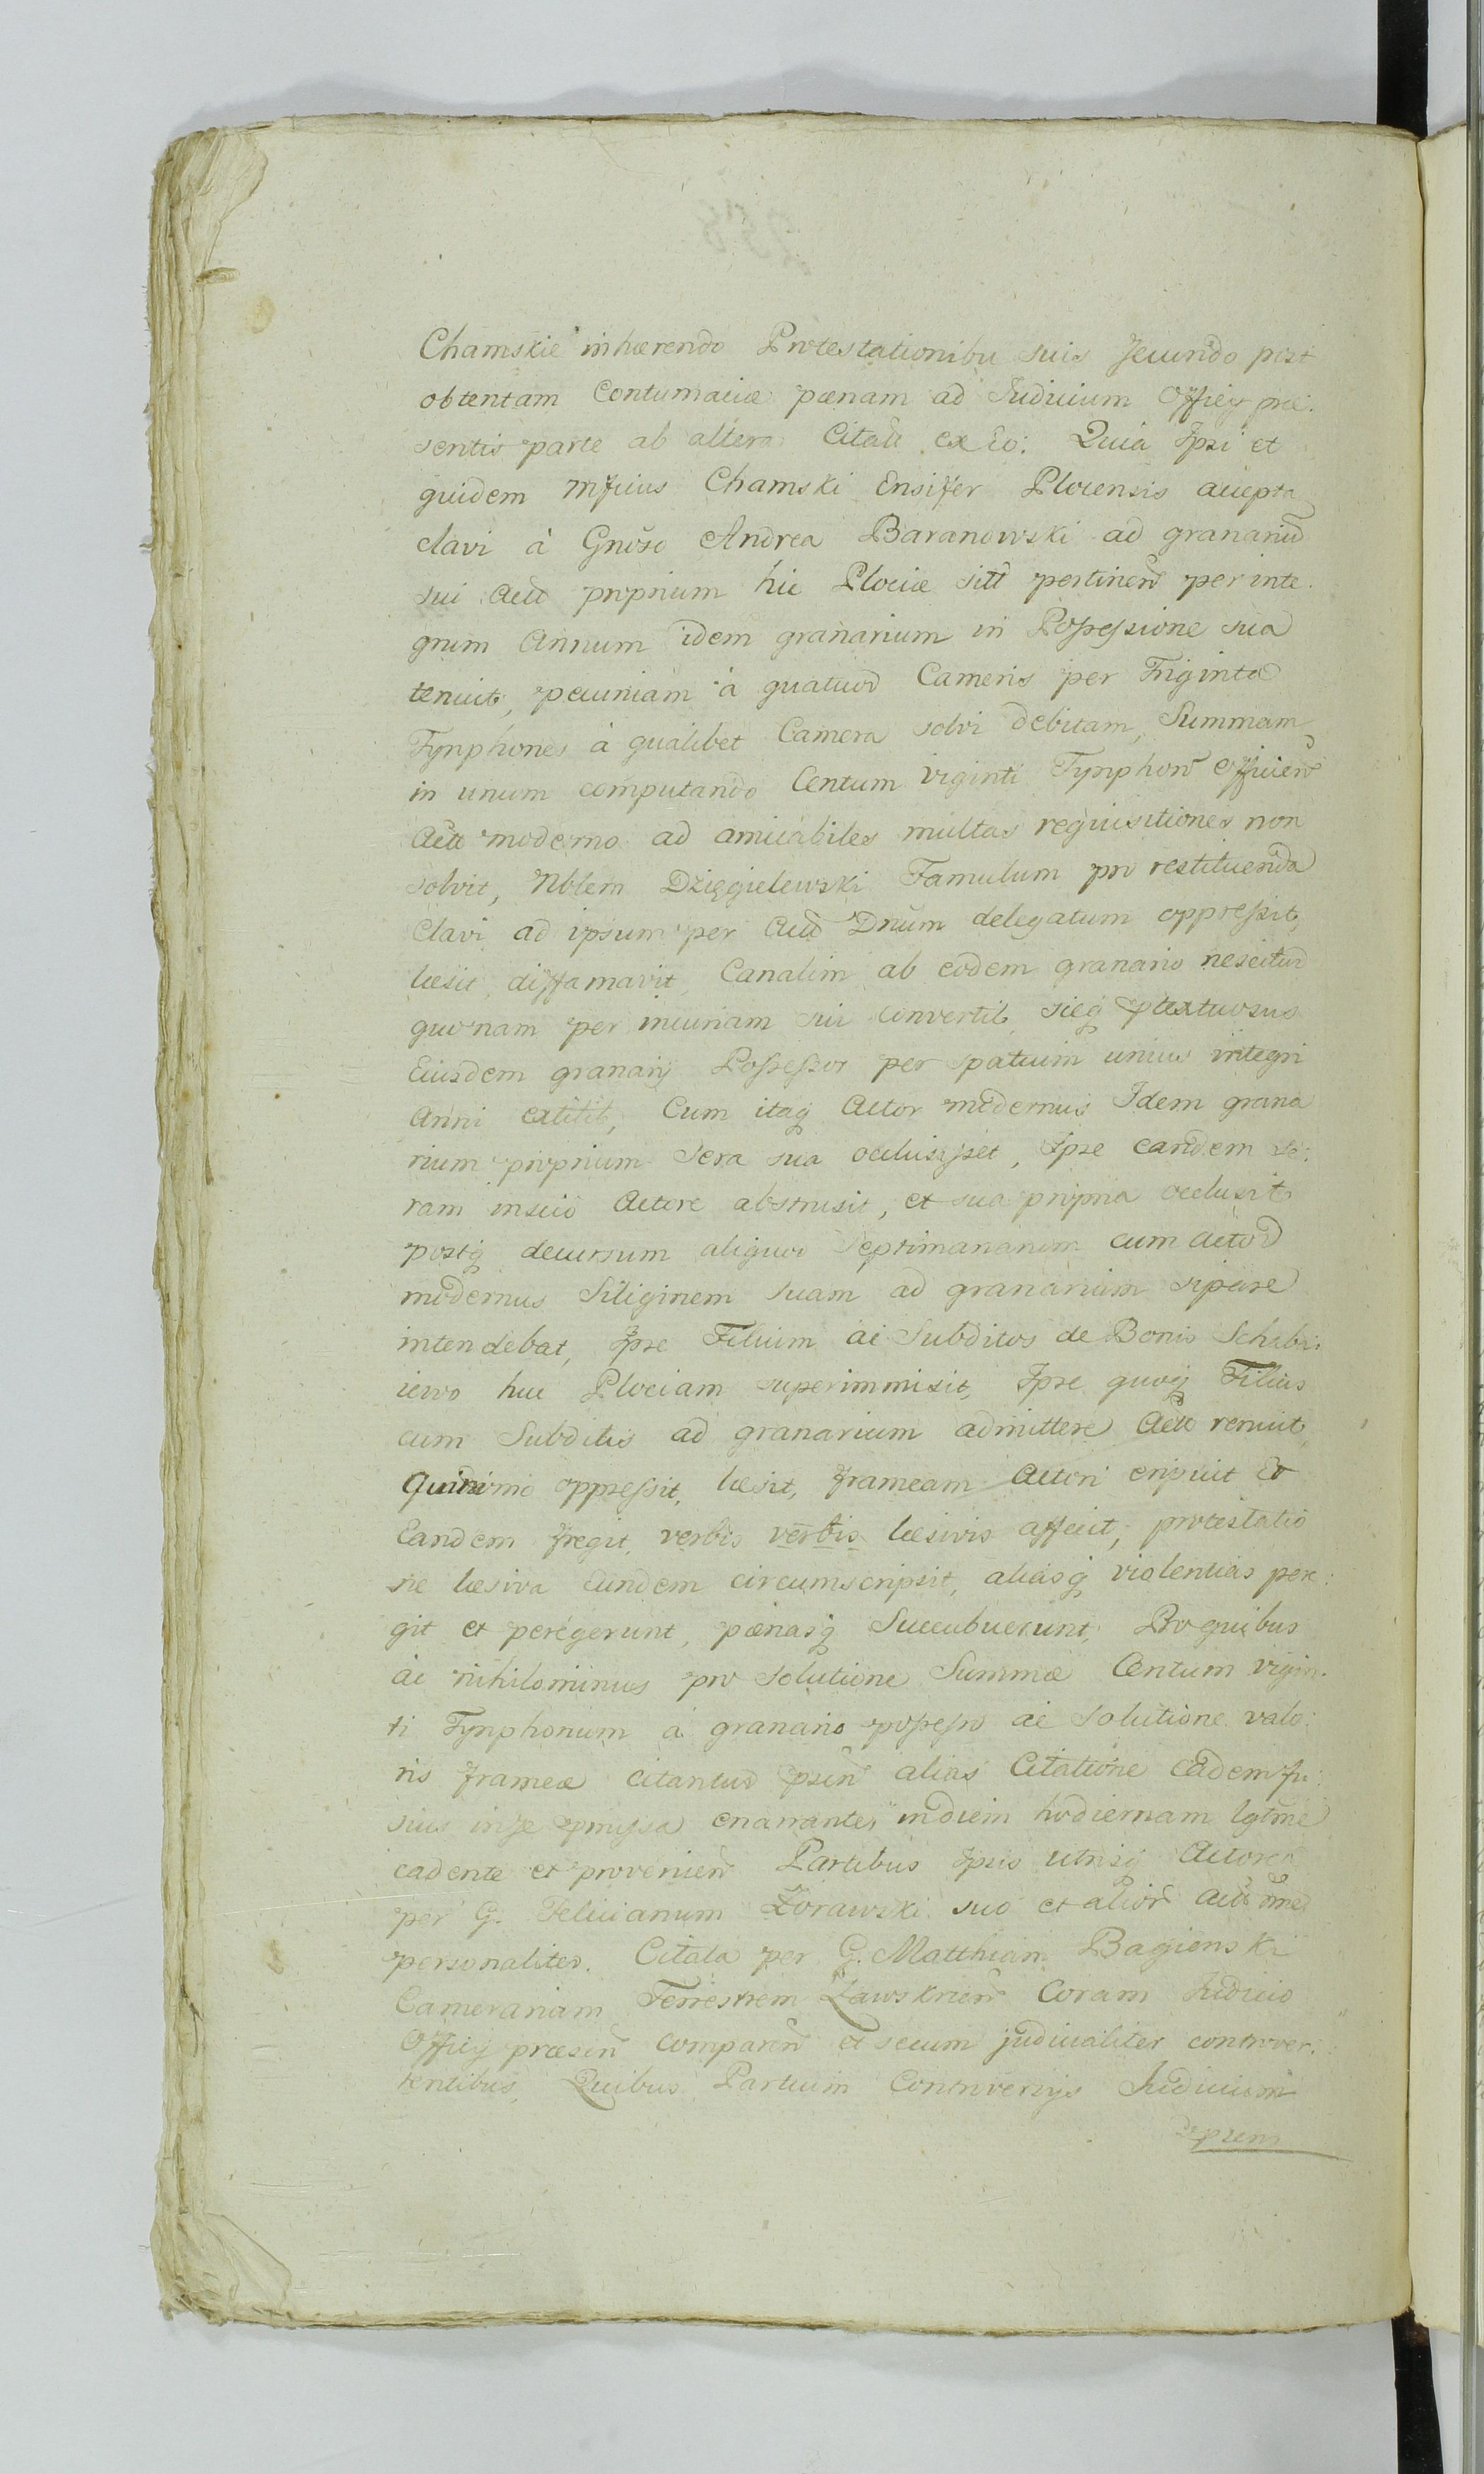 Chamskie inhærendo Protestationibu suis secundo post
obtentam Contumaciæ pænam ad Judicium Officÿ præ:
sentis parte ab altera Citatt ex Eo: Quia Ipsi et
quidem Mfcius Chamski Ensifer Plocensis accepta
clavi à Gnoso Andrea Baranowski ad granariũ
sui Actt proprium hic Plociæ sitt pertinen per inte:
grum Annum idem granarium in Possessione sua
tenuit, pecuniam à quatuor Cameris per Triginta
Tynphones à qualibet Camera solvi debitam, Summam
in unum computando Centum viginti Tynphon efficien
Actt moderno ad amicabiles multas requisitiones non
solvit, Nblem Dzięgielewski Famulum pro restituenda
Clavi ad ipsum per Actt Dnum delegatum oppressit,
læsit, diffamavit, Canalim ab eodem granario nescitur
quonam per incuriam sui convertit, sicq
Eiusdem granarÿ Possessor per spatium unius integri
Anni extitit, Cum itaq Actor modernus Idem grana
rium proprium Sera sua occlusisset, Ipse eandem se:
ram inscio Actore abstrusit, et sua propria occlusit
postq decursum aliquot Septimanarum cum Actor
modernus Siliginem suam ad granarium sipare
intendebat, Ipse Filium ac Subditos de Bonis
iewo huc Plociam superimmisit, Ipse quoq Filius
cum Subditis ad granarium admittere Actt renuit,
Quinimo oppressit, læsit, frameam Actori eripuit Et
Eandem fregit, verbis verbis læsivis affecit, protestatio
ne læsiva eundem circumscripsit, aliasq violentias pere:
git et peregerunt, pænasq Succubuerunt, Pro quibus
ac nihilominus pro solutione Summæ Centum vigin:
ti Tynphonum à granario possesso ac solutione valo:
ris frameæ citantur psen alias Citatione eadem fu:
sius in se pmissa enarrante, in diem hodiernam lgtme
cadente et provenien Partibus Ipsis utrisq Actorea
per G. Felicianum Zorawski suo et alior Actt nne
personaliter. Citata per G. Matthiam Bagienski
Camerariam Terrestrem Zawskrien Coram Judicio
Officÿ præsen comparen et secum judicialiter controver:
tentibus, Quibus Partium Controversÿs Judicium
psens